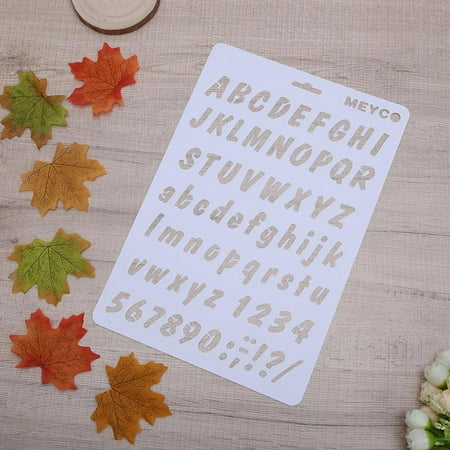 MEYCO
ABCDEFGHI
JKLMNOPQR
STUVWXYZ
abcdefghijk
lmnopqrstu
vwxyz 1234
567890:;"!?/